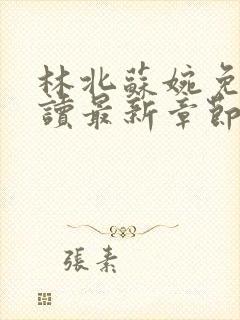 林北蘇婉免
讀最新章節
張素